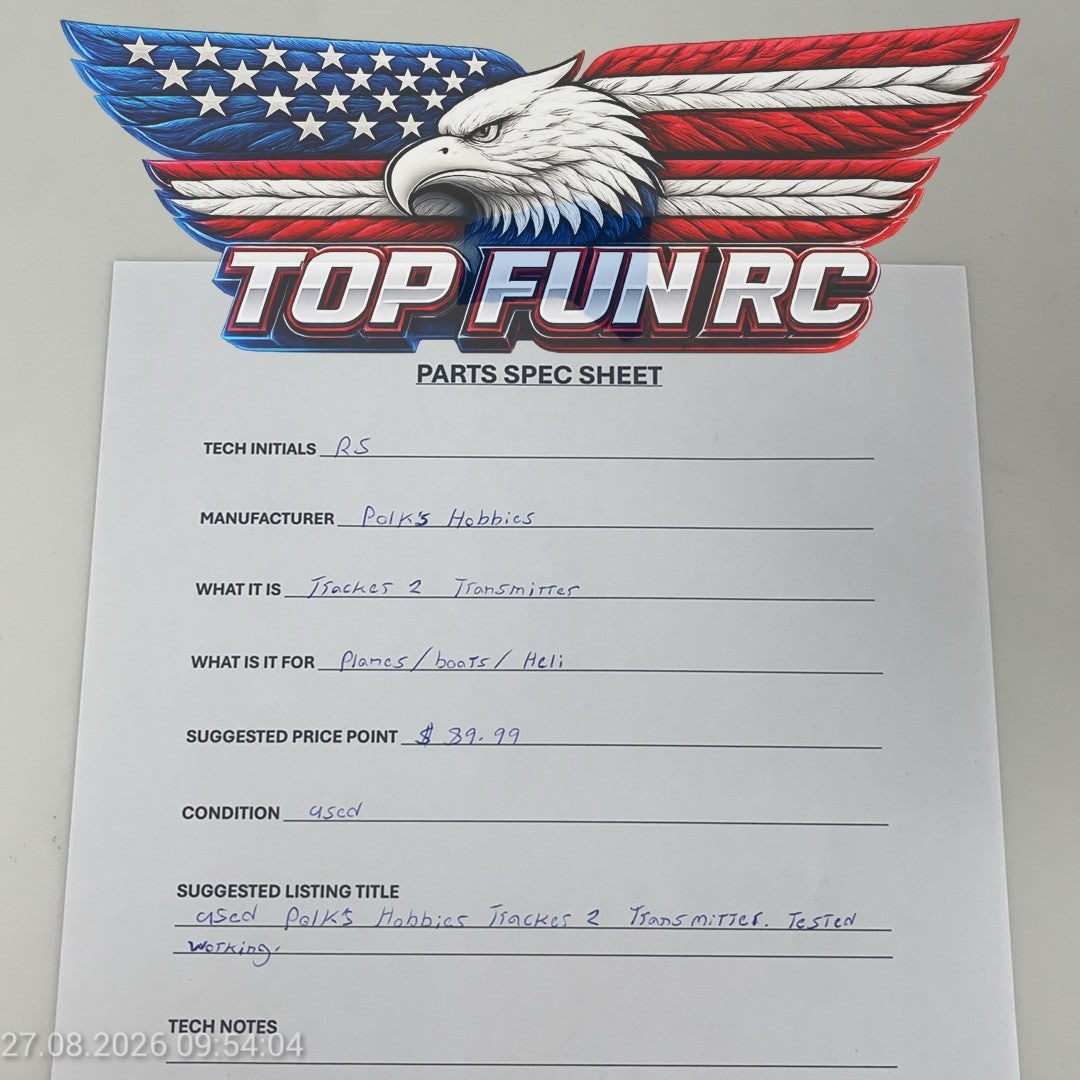 TOP FUN RC
PARTS SPEC SHEET
TECH INITIALS RS
MANUFACTURER Polk's Hobbies
WHAT IT IS Tracker 2 Transmitter
WHAT IS IT FOR Planes/boats/Heli
SUGGESTED PRICE POINT $ 89.99
CONDITION used
SUGGESTED LISTING TITLE
used Polk's Hobbies Tracker 2 Transmitter. Tested
working.
TECH NOTES
27.08.2026 09:54:04